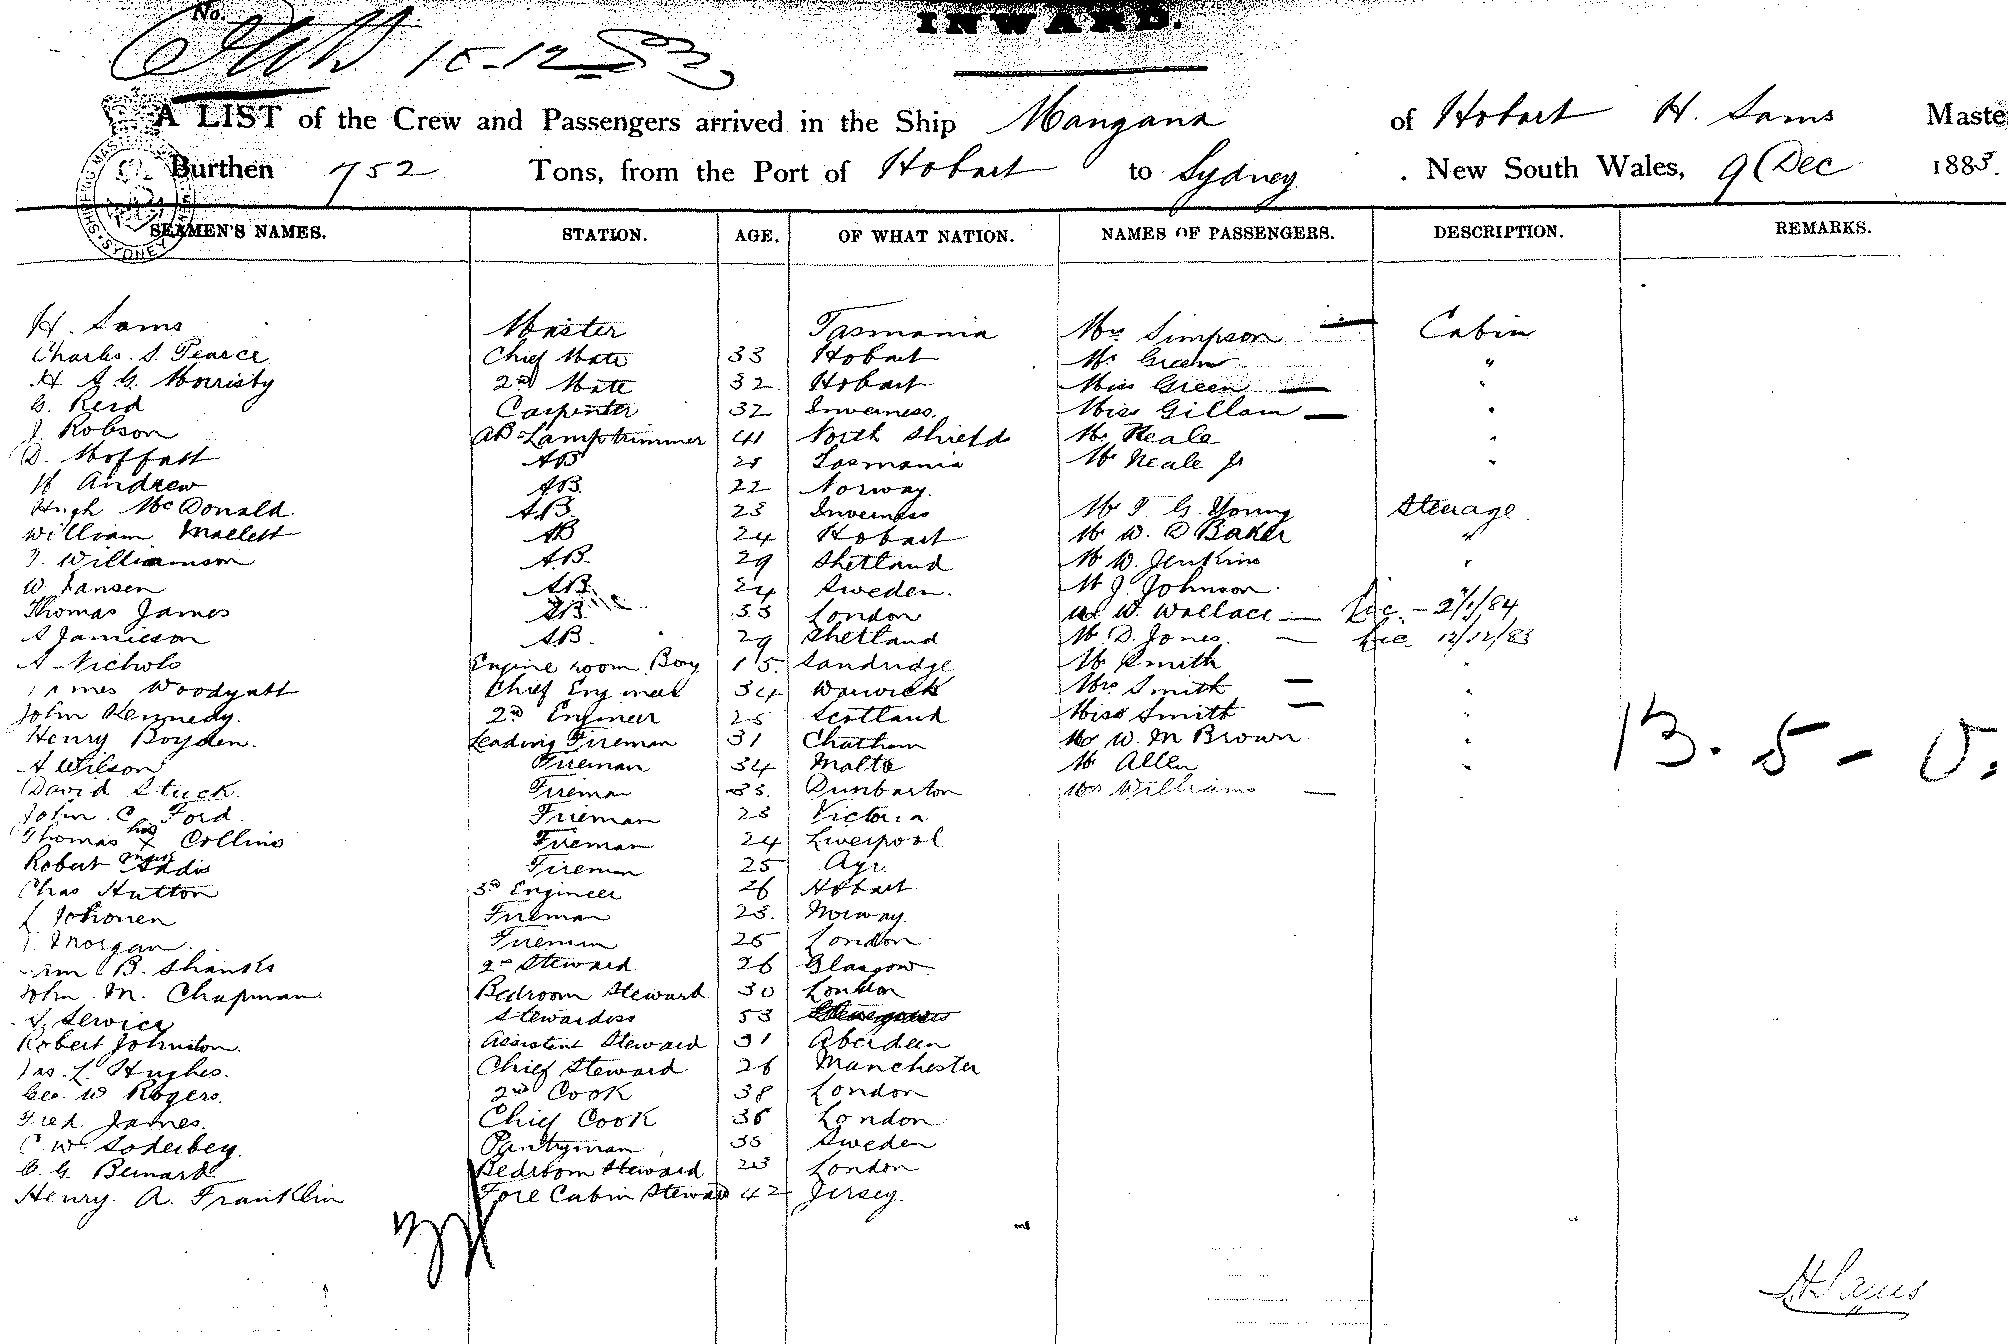 No.
INWARD.
15-12-83
A LIST of the Crew and Passengers arrived in the Ship Mangana of Hobart H. Sams Maste
Burthen 752 Tons, from the Port of Hobart to Sydney . New South Wales, 9 Dec 1883.
SEAMEN'S NAMES. STATION. AGE. OF WHAT NATION. NAMES OF PASSENGERS. DESCRIPTION. REMARKS.
H. Sams Master Tasmania Mrs Simpson — Cabin
Charles. S. Pearce Chief Mate 33 Hobart Mr Green "
H A G. Morrisby 2nd Mate 32 Hobart Miss Green — "
G. Reid Carpenter 32 Inverness. Miss Gillam — "
J Robson AB Lamptrimmer 41 North Shields Mr Neale "
D. Moffatt AB Tasmania Mr Neale Jr "
Andrew AB. 22 Norway.
Hugh McDonald AB. 23 Inverness Mr T. G. Young Steerage
William Mallett AB 24 Hobart Mr W. D Baker "
T. Williamson A.B. 29 Shetland Mr W. Jenkins "
W. Jansen AB. 24 Sweden. Mr J. Johnson
Thomas James AB. 33 London W. Wallace — 2/1/84
A Jamieson AB. 29 Shetland Mr D. Jones. — 12/12/83
A Nichols Engine room Boy 15. Sandridge Mr Smith "
James Woodyatt Chief Engineer 34 Warwick Mrs Smith — "
John Kennedy. 2nd Engineer 25 Scotland Miss Smith — "
Henry Boyden. Leading Fireman 31 Chatham Mr W. M Brown "
13. 5 - 0.
A Wilson Fireman 34 Malta Mr Allen "
David Stuck. Fireman 33. Dunbarton Mrs Williams —
John. C. Ford. Fireman 23 Victoria
Thomas his x mark Collins Fireman 24 Liverpool
Robert Addis Fireman 25 Ayr.
Chas Hutton 3rd Engineer 26 Hobart
Fireman 23. Norway.
Morgan. Fireman 25 London
B. Shanks 2nd Steward 26 Glasgow
John. M. Chapman. Bedroom Steward 30 London
Service Stewardess 53
Robert Johnston. Assistent Steward 31 Aberdeen
Jas. L. Hughes. Chief Steward 26 Manchester
Geo. W Rogers. 2nd Cook 38 London
Fred James. Chief Cook 36 London
C. W Soderbey. Pantryman 35 Sweden
C. G. Bernard Bedroom Steward 23 London
Henry. A. Franklin Fore Cabin Steward 42 Jersey.
H Sams